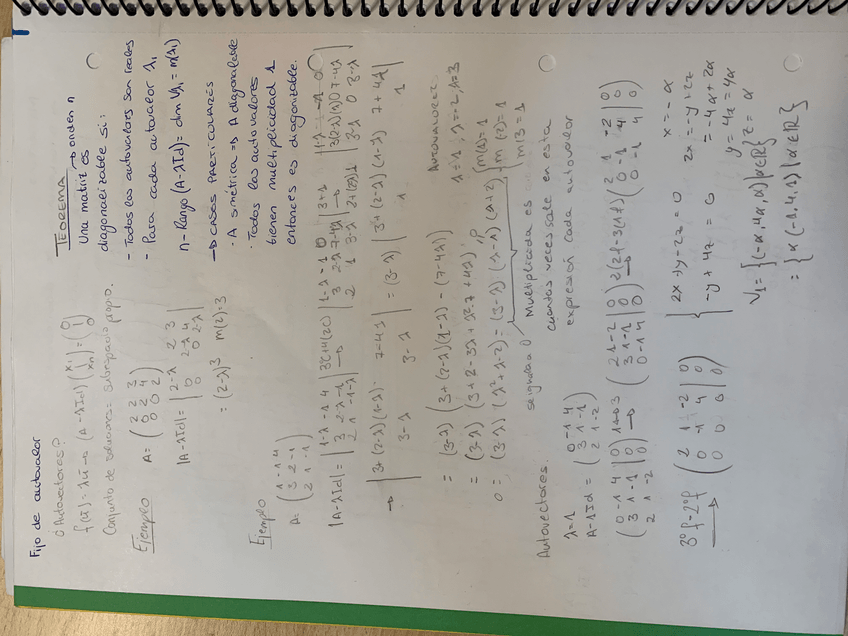 Fijo de autovalor
¿Autovectores?
f(ū) = λū → (A-λId) (x₁ ⋮ xₙ) = (0 ⋮ 0)
Conjunto de soluciones = subespacio propio.
Ejemplo
A = (2 2 3
0 2 4
0 0 2)
|A-λId| = |2-λ 2 3
0 2-λ 4
0 0 2-λ|
= (2-λ)³ m(2)=3
TEOREMA → orden n
Una matriz es
diagonalizable si:
- Todos los autovalores son reales
- Para cada autovalor λ₁
n-Rango(A-λId) = dim Vλ₁ = m(λ₁)
→ CASOS PARTICULARES
· A simétrica ⇒ A diagonalizable
· Todos los autovalores
tienen multiplicidad 1
entonces es diagonizable.
Ejemplo
A = (1 -1 4
3 2 -1
2 1 -1)
|A-λId| = |1-λ -1 4
3 2-λ -1
2 1 -1-λ|
→ |3+(2-λ)(1-λ) 7-4λ
3-λ| = (3-λ) |3+(2-λ)(1-λ) 7+4λ
1 1|
= (3-λ) (3+(2-λ)(1-λ) - (7-4λ))
= (3-λ) (3+2-3λ+λ²-7+4λ)
0 = (3-λ) (λ²+λ-2) = (3-λ) (λ-1) (λ+2)
AUTOVALORES
λ=1, λ=-2, λ=3
m(1)=1
m(-2)=1
m(3)=1
Multiplicidad es
cuantas veces sale en esta
expresión cada autovalor
igualada 0
Autovectores.
λ=1
A-1Id = (0 -1 4
3 1 -1
2 1 -2)
(0 -1 4 | 0
3 1 -1 | 0
2 1 -2 | 0) → (2 1 -2 | 0
3 1 -1 | 0
0 -1 4 | 0) → (2 1 -2 | 0
0 -1 4 | 0
0 -1 4 | 0)
3ºf-2ºf → (2 1 -2 | 0
0 -1 4 | 0
0 0 0 | 0)
{2x+y-2z=0
-y+4z=0
x=-α
2x=-y+2z
=-4α+2α
y=4z=4α
z=α
V₁ = {(-α, 4α, α) | α∈ℝ}
= {α(-1,4,1) | α∈ℝ}